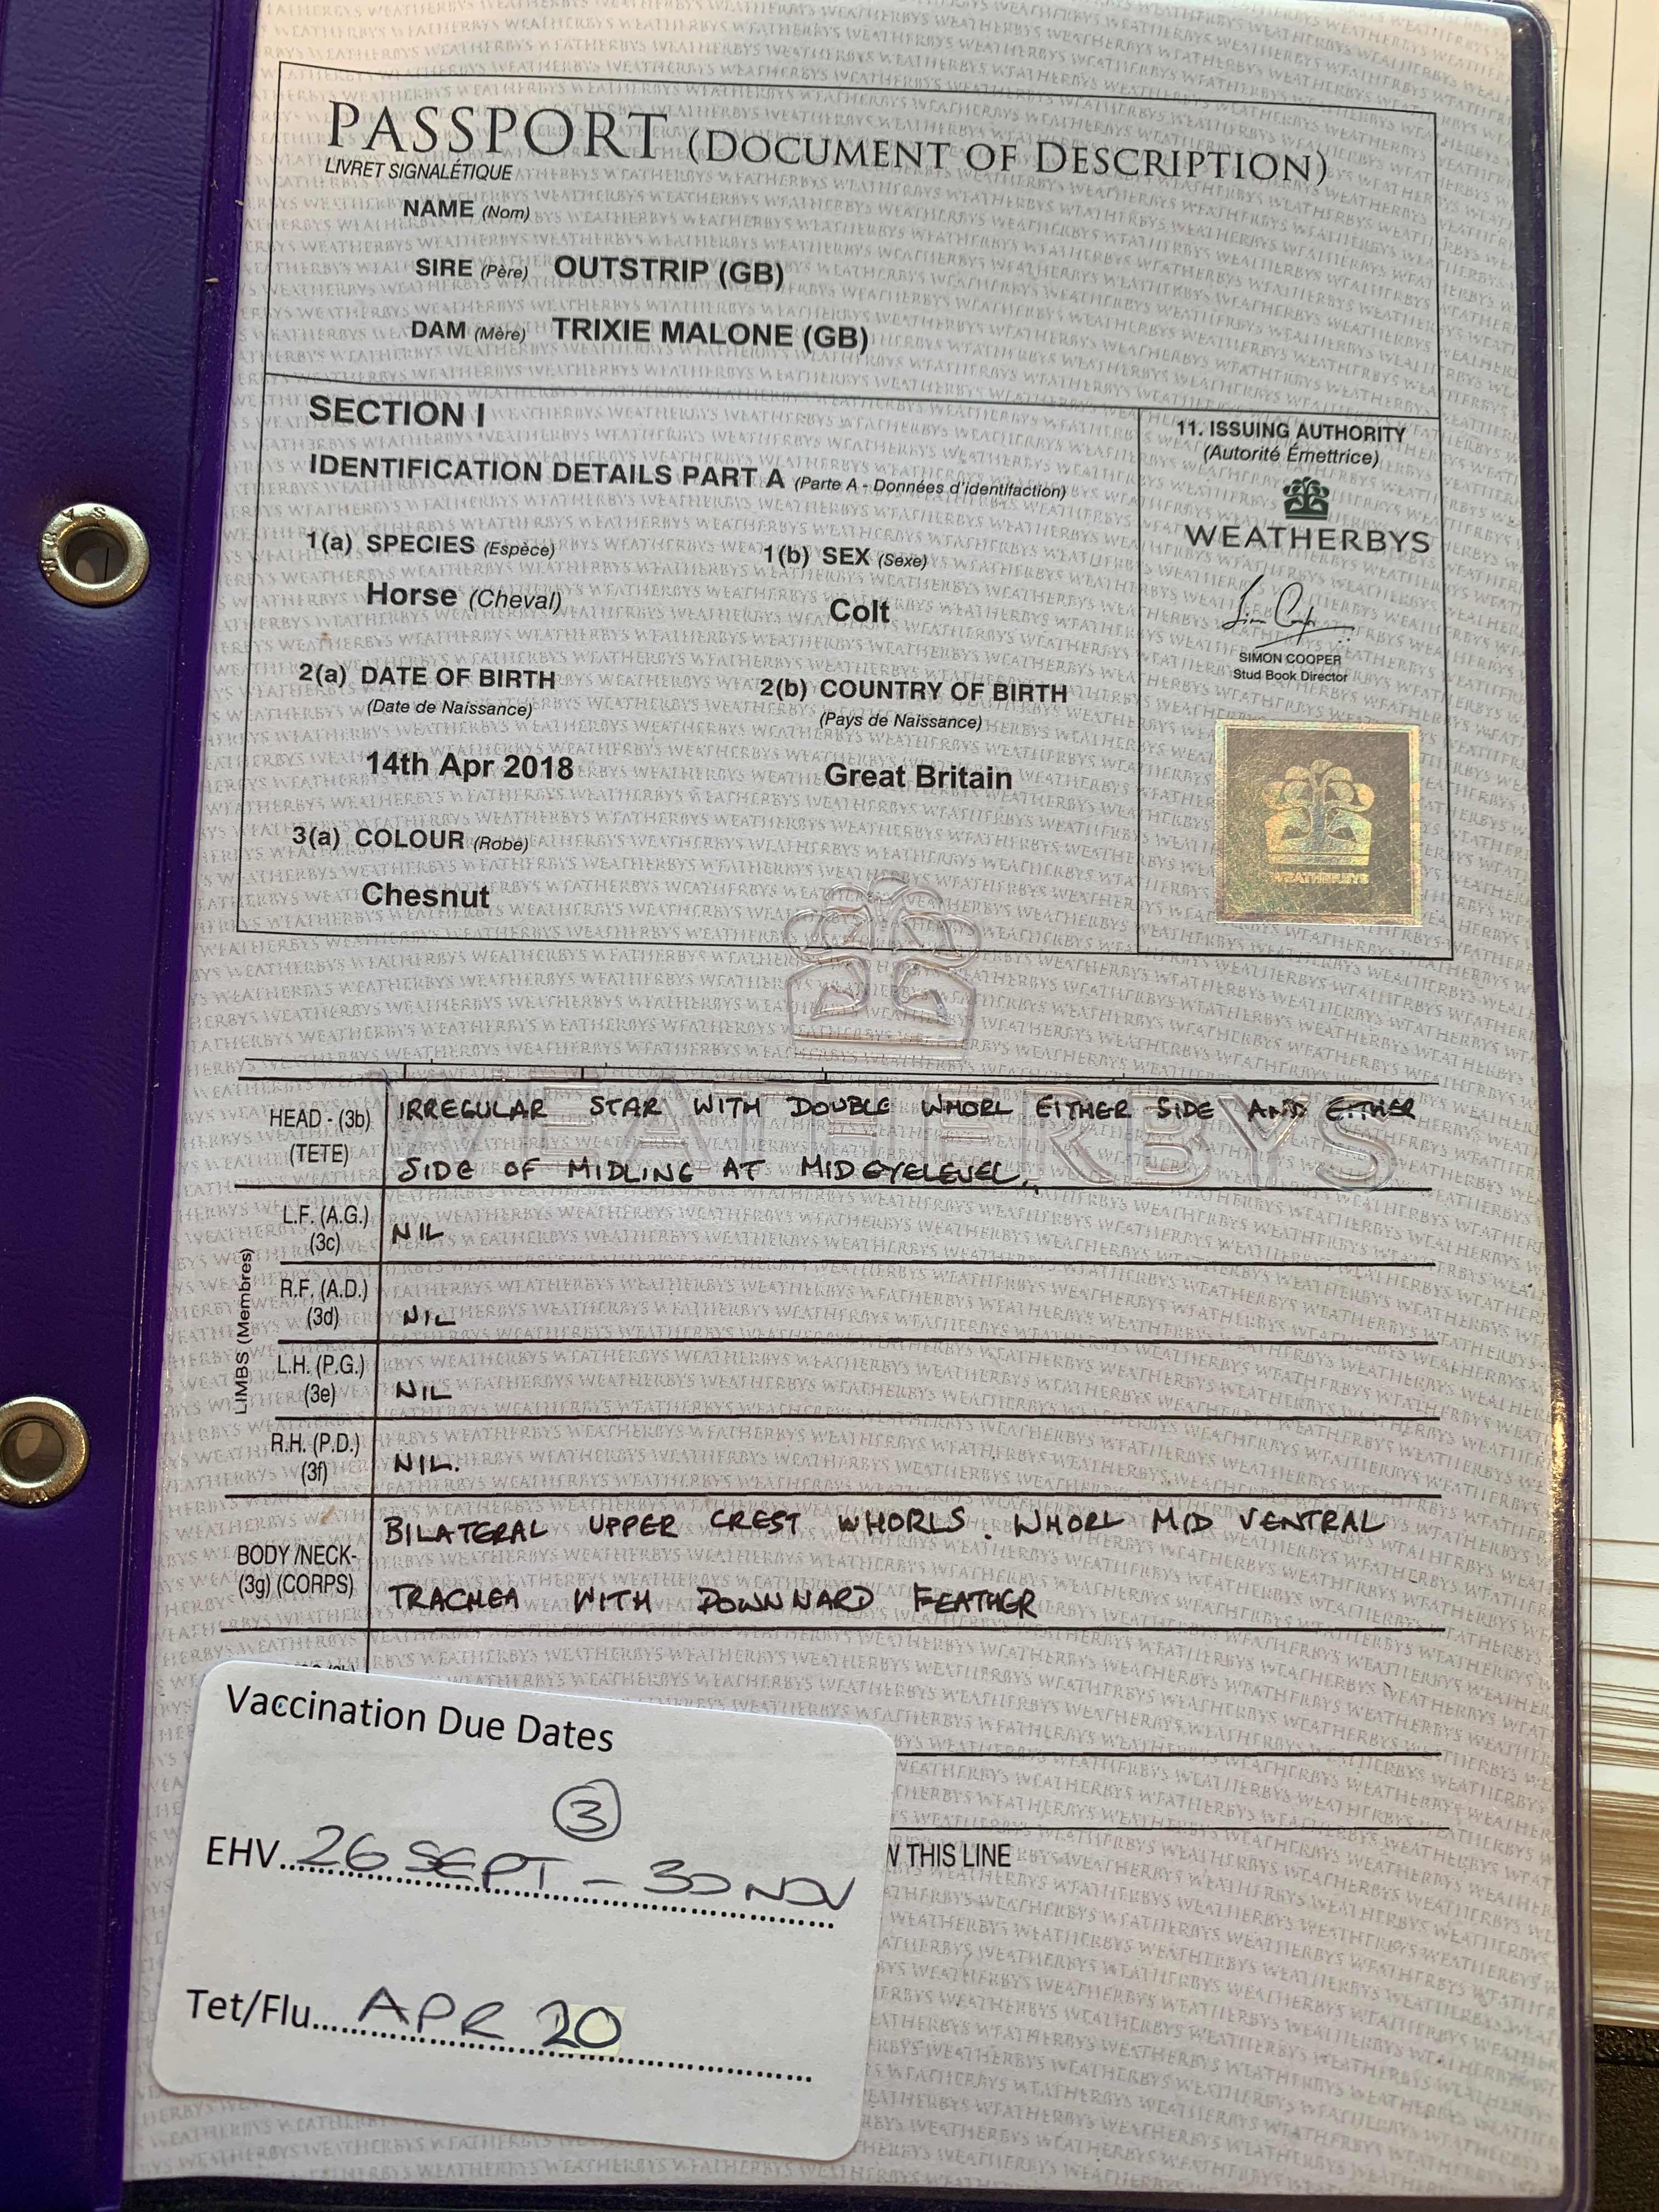 PASSPORT (DOCUMENT OF DESCRIPTION)
LIVRET SIGNALÉTIQUE
NAME (Nom)
SIRE (Père) OUTSTRIP (GB)
DAM (Mère) TRIXIE MALONE (GB)
SECTION I
IDENTIFICATION DETAILS PART A (Parte A - Données d'identifaction)
1(a) SPECIES (Espèce)
Horse (Cheval)
1(b) SEX (Sexe)
Colt
2(a) DATE OF BIRTH
(Date de Naissance)
14th Apr 2018
2(b) COUNTRY OF BIRTH
(Pays de Naissance)
Great Britain
3(a) COLOUR (Robe)
Chesnut
11. ISSUING AUTHORITY
(Autorité Émettrice)
WEATHERBYS
SIMON COOPER
Stud Book Director
WEATHERBYS
WEATHERBYS
HEAD - (3b)
(TETE)
IRREGULAR STAR WITH DOUBLE WHORL EITHER SIDE AND EITHER
SIDE OF MIDLINE AT MID EYELEVEL.
LIMBS (Membres)
L.F. (A.G.)
(3c)
NIL
R.F. (A.D.)
(3d)
NIL
L.H. (P.G.)
(3e)
NIL
R.H. (P.D.)
(3f)
NIL.
BODY /NECK-
(3g) (CORPS)
BILATERAL UPPER CREST WHORLS. WHORL MID VENTRAL
TRACHEA WITH DOWNWARD FEATHER
THIS LINE
Vaccination Due Dates
3
EHV...26 SEPT – 30 NOV
Tet/Flu...APR 20